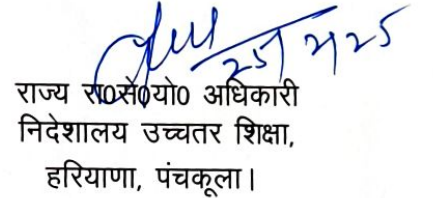 25/2/25
राज्य रा०से०यो० अधिकारी
निदेशालय उच्चतर शिक्षा,
हरियाणा, पंचकूला।